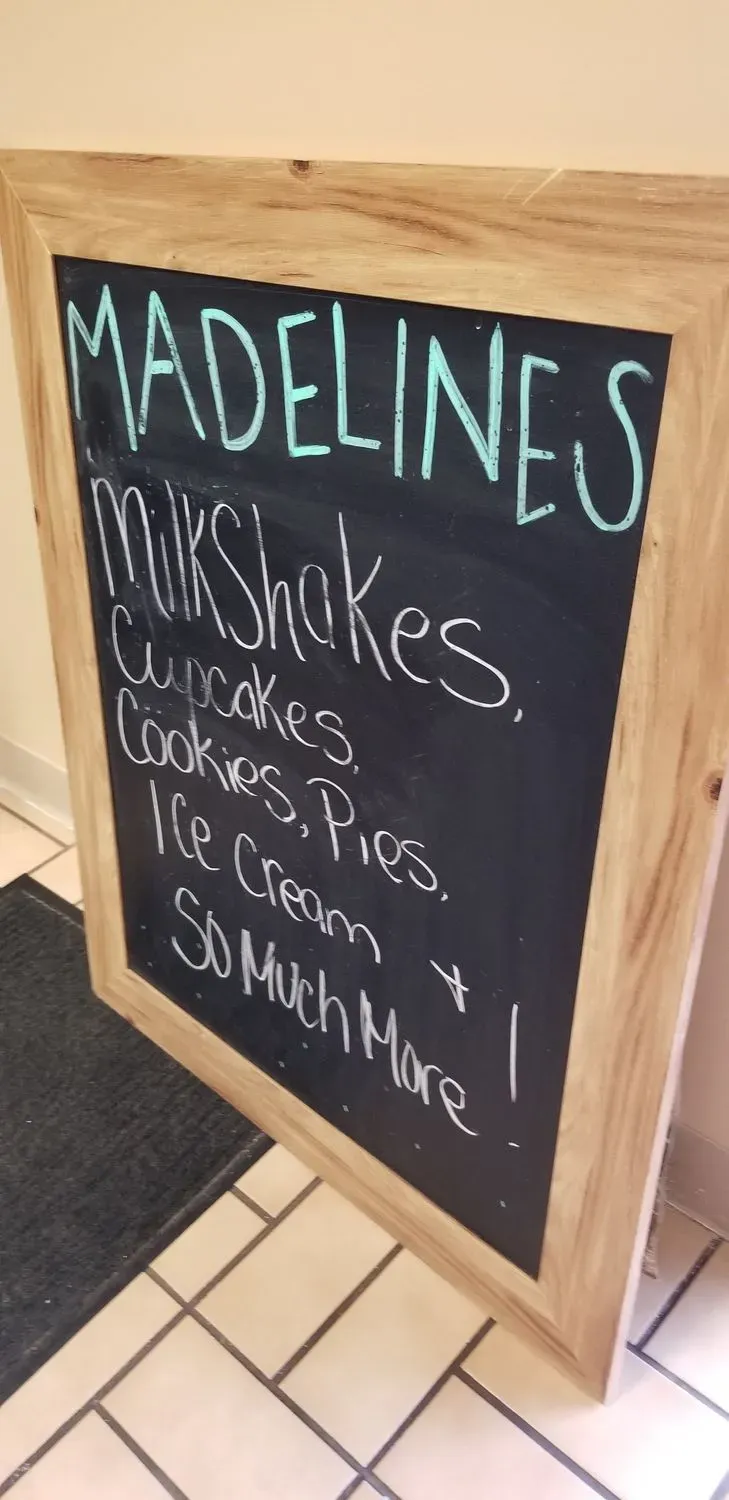 MADELINES
MilkShakes,
Cupcakes,
Cookies, Pies,
Ice Cream +
So Much More !